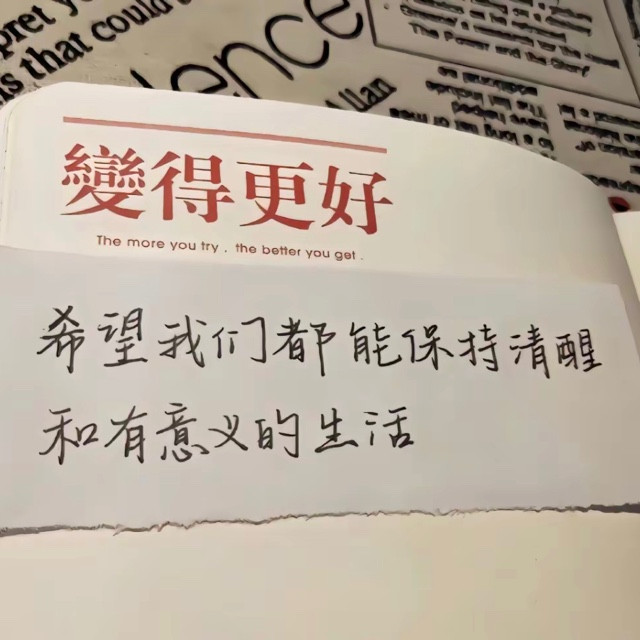 pret you
s that could
ence
Allan
變得更好
The more you try . the better you get .
希望我们都能保持清醒
和有意义的生活